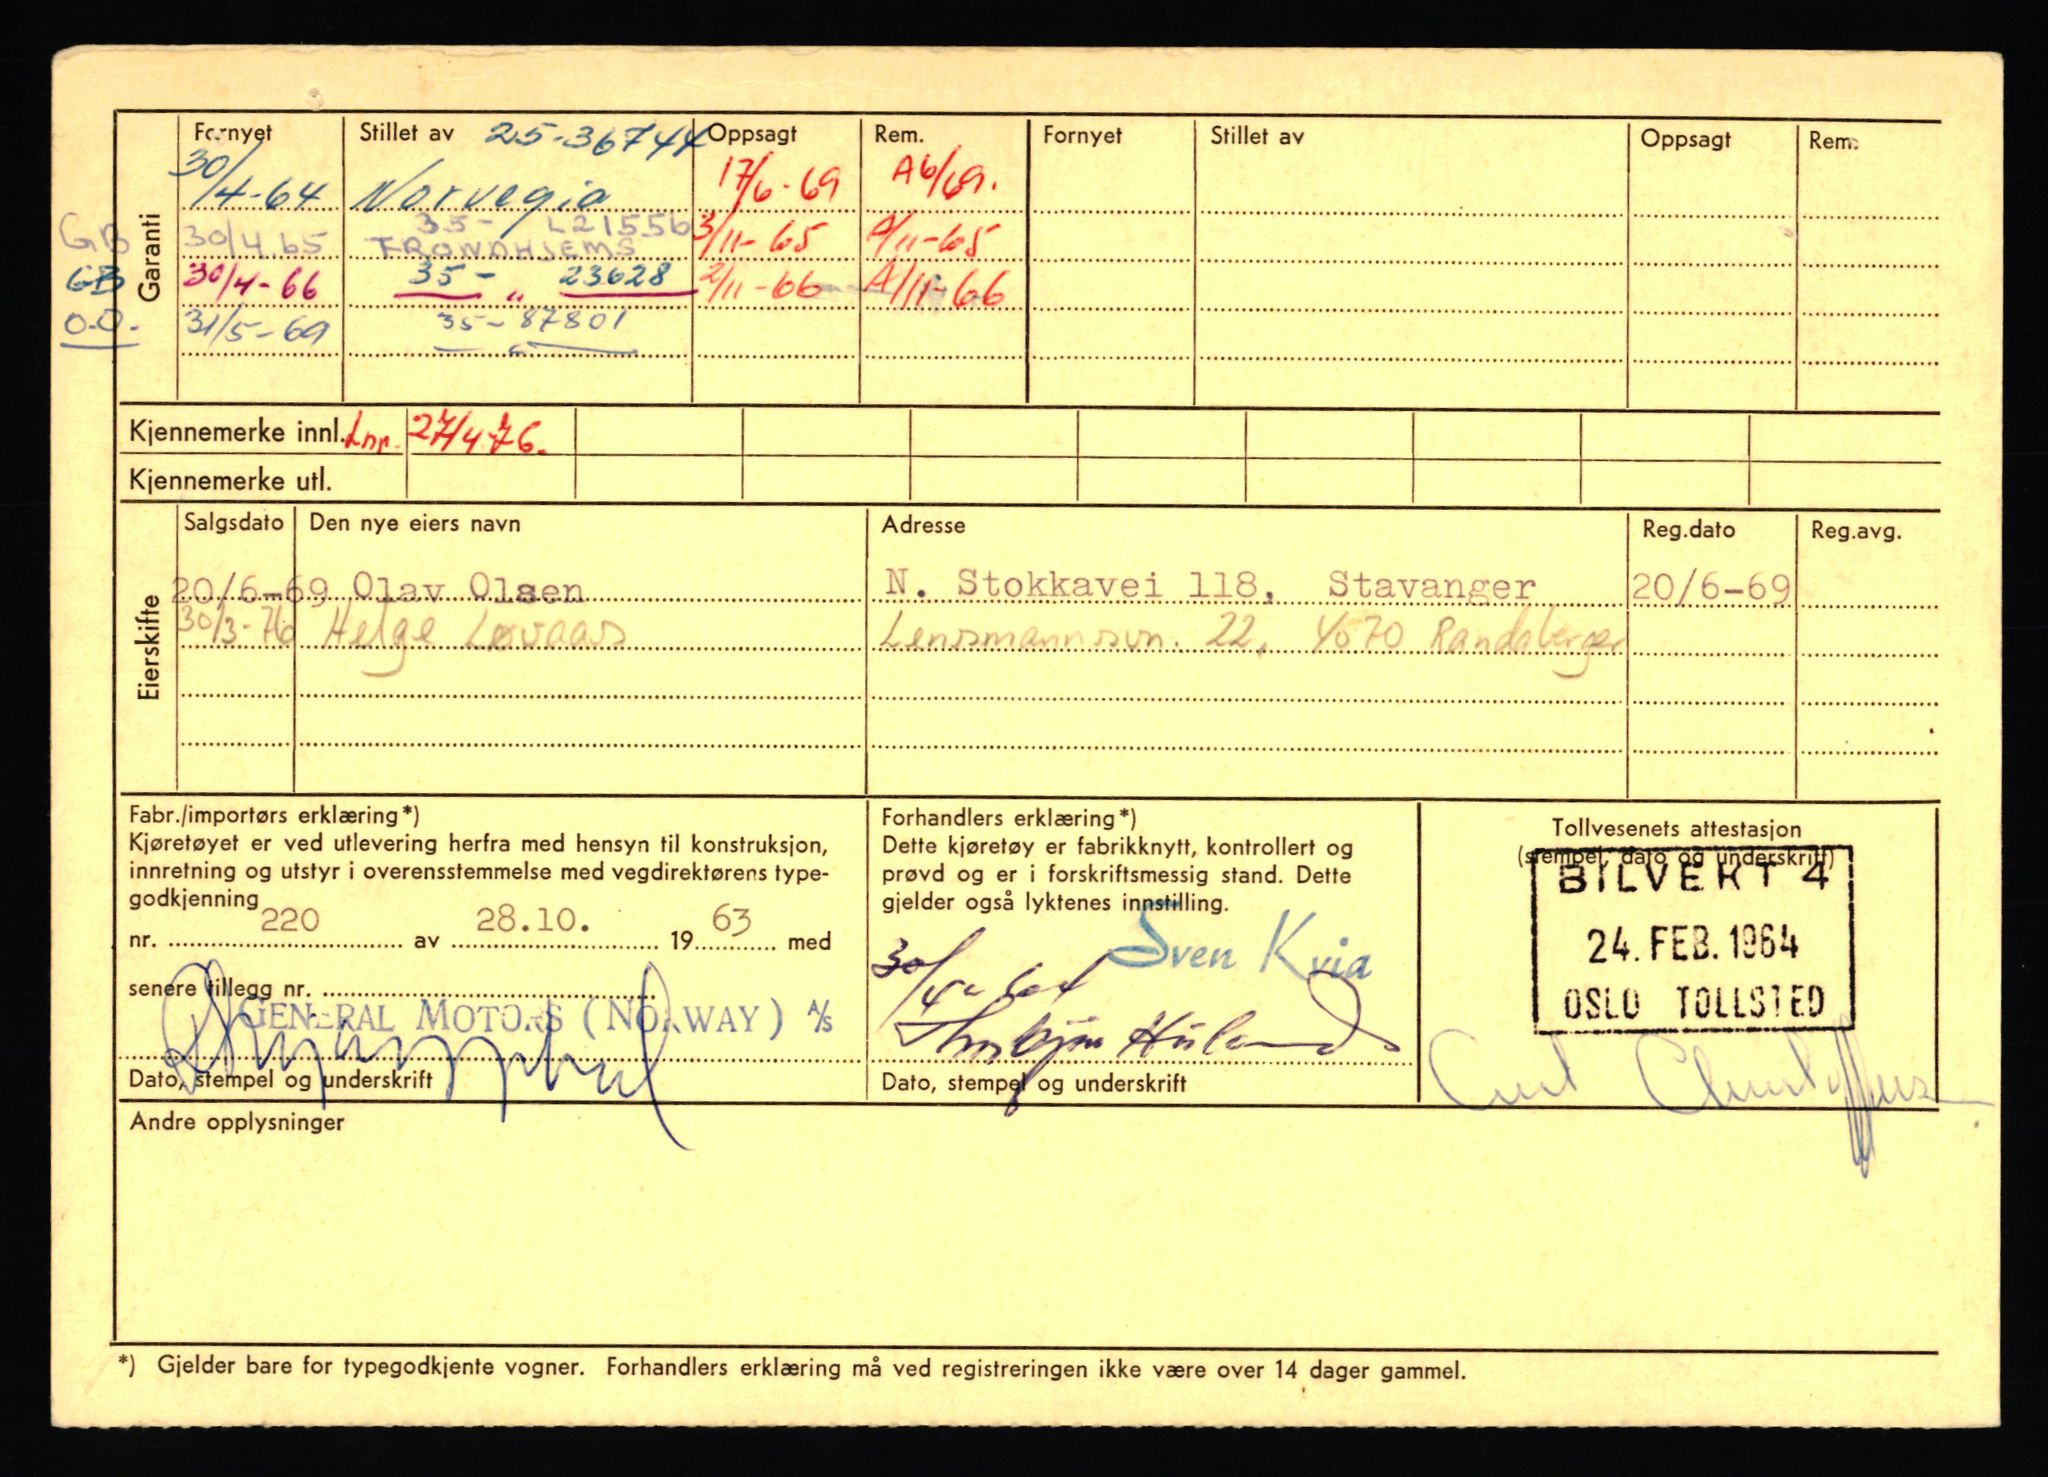 Garanti
Fornyet Stillet av 25-36744 Oppsagt Rem. Fornyet Stillet av Oppsagt Rem.
30/4-64 Norvegia 17/6-69 A6/69.
GB 30/4.65 35- L21556 TRONDHJEMS 3/11-65 A/11-65
GB 30/4-66 35- „ 23628 2/11-66 A/11-66
O.O. 31/5-69 35-87801
Kjennemerke innl. Lnr. 27/4-76.
Kjennemerke utl.
Eierskifte
Salgsdato Den nye eiers navn Adresse Reg.dato Reg.avg.
20/6-69 Olav Olsen N. Stokkavei 118, Stavanger 20/6-69
30/3-76 Helge Løvaas Lensmannsvn. 22, 4070 Randaberg
Fabr./importørs erklæring*)
Kjøretøyet er ved utlevering herfra med hensyn til konstruksjon,
innretning og utstyr i overensstemmelse med vegdirektørens type-
godkjenning
nr. 220 av 28.10. 1963 med
senere tillegg nr.
GENERAL MOTORS (NORWAY) A/S
Dato, stempel og underskrift
Forhandlers erklæring*)
Dette kjøretøy er fabrikknytt, kontrollert og
prøvd og er i forskriftsmessig stand. Dette
gjelder også lyktenes innstilling.
Sven Kvia
30/4-64
Dato, stempel og underskrift
Tollvesenets attestasjon
(stempel, dato og underskrift)
BILVEKT 4
24. FEB. 1964
OSLO TOLLSTED
Andre opplysninger
*) Gjelder bare for typegodkjente vogner. Forhandlers erklæring må ved registreringen ikke være over 14 dager gammel.